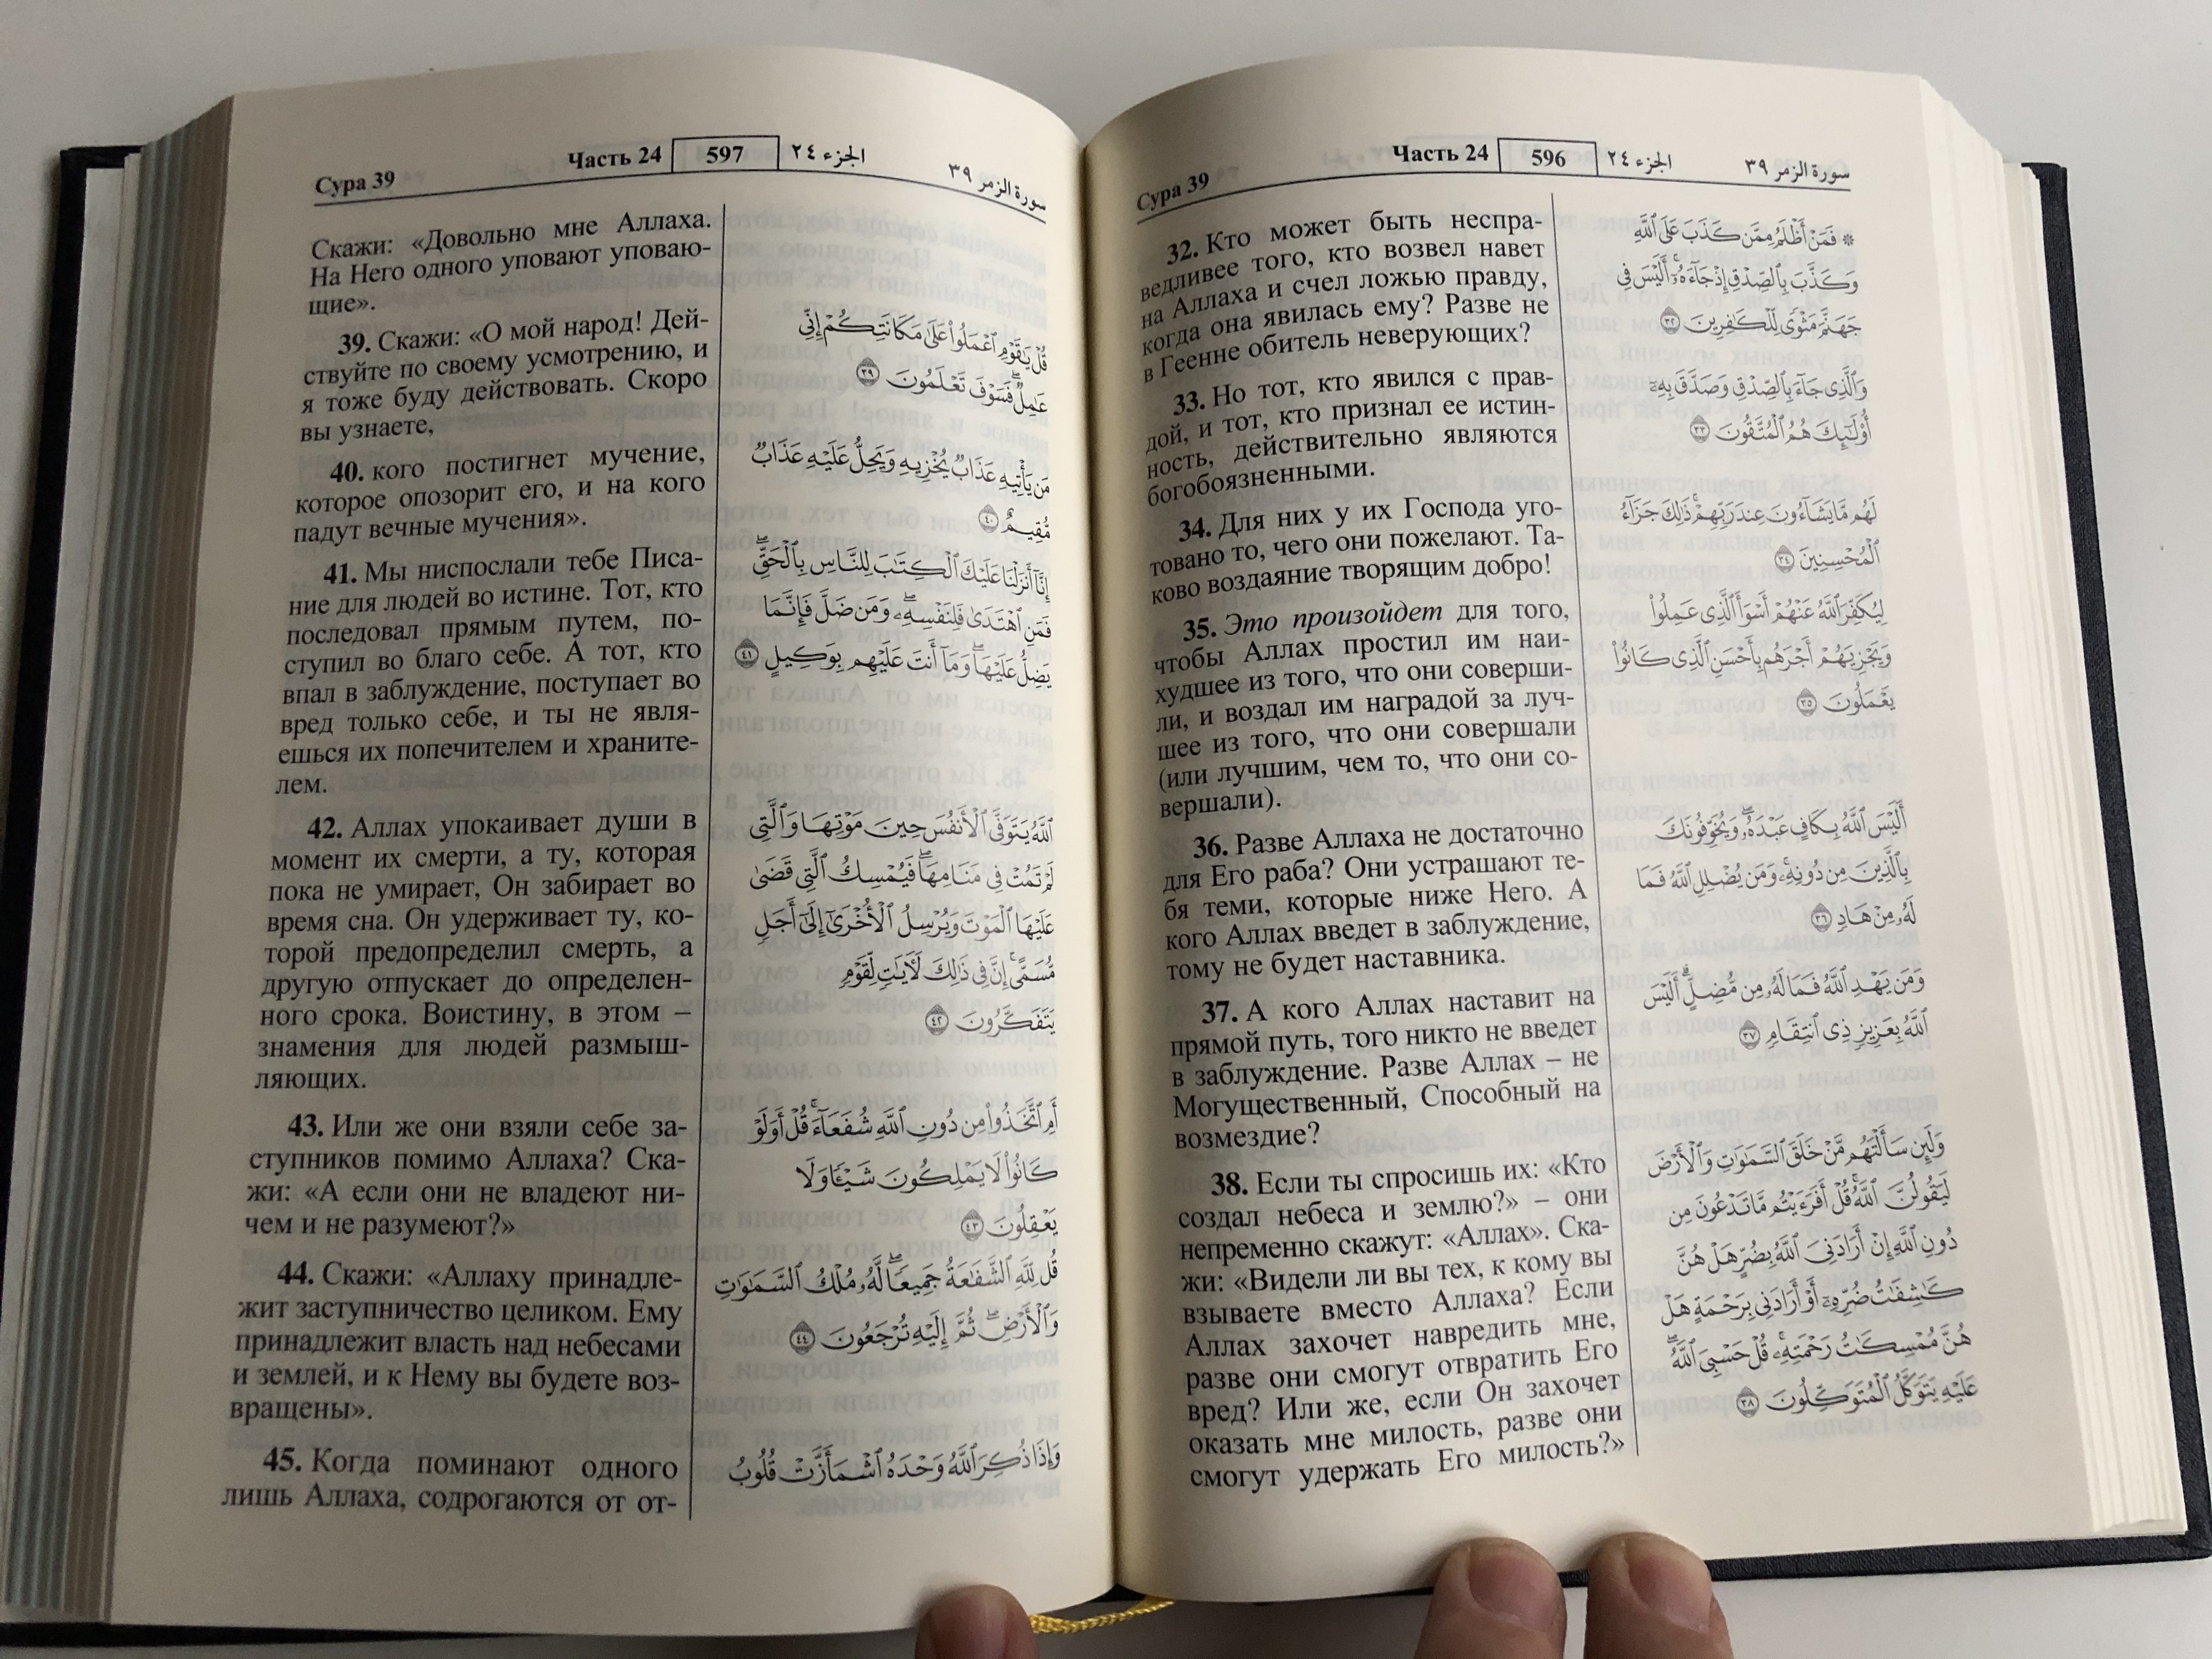 Сура 39 Часть 24 596 الجزء ٢٤ سورة الزمر ٣٩
32. Кто может быть неспра-
ведливее того, кто возвел навет
на Аллаха и счел ложью правду,
когда она явилась ему? Разве не
в Геенне обитель неверующих?
33. Но тот, кто явился с прав-
дой, и тот, кто признал ее истин-
ность, действительно являются
богобоязненными.
34. Для них у их Господа уго-
товано то, чего они пожелают. Та-
ково воздаяние творящим добро!
35. Это произойдет для того,
чтобы Аллах простил им наи-
худшее из того, что они соверши-
ли, и воздал им наградой за луч-
шее из того, что они совершали
(или лучшим, чем то, что они со-
вершали).
36. Разве Аллаха не достаточно
для Его раба? Они устрашают те-
бя теми, которые ниже Него. А
кого Аллах введет в заблуждение,
тому не будет наставника.
37. А кого Аллах наставит на
прямой путь, того никто не введет
в заблуждение. Разве Аллах – не
Могущественный, Способный на
возмездие?
38. Если ты спросишь их: «Кто
создал небеса и землю?» – они
непременно скажут: «Аллах». Ска-
жи: «Видели ли вы тех, к кому вы
взываете вместо Аллаха? Если
Аллах захочет навредить мне,
разве они смогут отвратить Его
вред? Или же, если Он захочет
оказать мне милость, разве они
смогут удержать Его милость?»
۞ فَمَنْ أَظْلَمُ مِمَّن كَذَبَ عَلَى ٱللَّهِ
وَكَذَّبَ بِٱلصِّدْقِ إِذْ جَآءَهُۥٓ ۚ أَلَيْسَ فِى
جَهَنَّمَ مَثْوًى لِّلْكَٰفِرِينَ ٣٢
وَٱلَّذِى جَآءَ بِٱلصِّدْقِ وَصَدَّقَ بِهِۦٓ
أُو۟لَٰٓئِكَ هُمُ ٱلْمُتَّقُونَ ٣٣
لَهُم مَّا يَشَآءُونَ عِندَ رَبِّهِمْ ۚ ذَٰلِكَ جَزَآءُ
ٱلْمُحْسِنِينَ ٣٤
لِيُكَفِّرَ ٱللَّهُ عَنْهُمْ أَسْوَأَ ٱلَّذِى عَمِلُوا۟
وَيَجْزِيَهُمْ أَجْرَهُم بِأَحْسَنِ ٱلَّذِى كَانُوا۟
يَعْمَلُونَ ٣٥
أَلَيْسَ ٱللَّهُ بِكَافٍ عَبْدَهُۥ ۖ وَيُخَوِّفُونَكَ
بِٱلَّذِينَ مِن دُونِهِۦ ۚ وَمَن يُضْلِلِ ٱللَّهُ فَمَا
لَهُۥ مِنْ هَادٍ ٣٦
وَمَن يَهْدِ ٱللَّهُ فَمَا لَهُۥ مِن مُّضِلٍّ ۗ أَلَيْسَ
ٱللَّهُ بِعَزِيزٍ ذِى ٱنتِقَامٍ ٣٧
وَلَئِن سَأَلْتَهُم مَّنْ خَلَقَ ٱلسَّمَٰوَٰتِ وَٱلْأَرْضَ
لَيَقُولُنَّ ٱللَّهُ ۚ قُلْ أَفَرَءَيْتُم مَّا تَدْعُونَ مِن
دُونِ ٱللَّهِ إِنْ أَرَادَنِىَ ٱللَّهُ بِضُرٍّ هَلْ هُنَّ
كَٰشِفَٰتُ ضُرِّهِۦٓ أَوْ أَرَادَنِى بِرَحْمَةٍ هَلْ
هُنَّ مُمْسِكَٰتُ رَحْمَتِهِۦ ۚ قُلْ حَسْبِىَ ٱللَّهُ ۖ
عَلَيْهِ يَتَوَكَّلُ ٱلْمُتَوَكِّلُونَ ٣٨
Сура 39 Часть 24 597 الجزء ٢٤ سورة الزمر ٣٩
Скажи: «Довольно мне Аллаха.
На Него одного уповают уповаю-
щие».
39. Скажи: «О мой народ! Дей-
ствуйте по своему усмотрению, и
я тоже буду действовать. Скоро
вы узнаете,
40. кого постигнет мучение,
которое опозорит его, и на кого
падут вечные мучения».
41. Мы ниспослали тебе Писа-
ние для людей во истине. Тот, кто
последовал прямым путем, по-
ступил во благо себе. А тот, кто
впал в заблуждение, поступает во
вред только себе, и ты не явля-
ешься их попечителем и храните-
лем.
42. Аллах упокаивает души в
момент их смерти, а ту, которая
пока не умирает, Он забирает во
время сна. Он удерживает ту, ко-
торой предопределил смерть, а
другую отпускает до определен-
ного срока. Воистину, в этом –
знамения для людей размыш-
ляющих.
43. Или же они взяли себе за-
ступников помимо Аллаха? Ска-
жи: «А если они не владеют ни-
чем и не разумеют?»
44. Скажи: «Аллаху принадле-
жит заступничество целиком. Ему
принадлежит власть над небесами
и землей, и к Нему вы будете воз-
вращены».
45. Когда поминают одного
лишь Аллаха, содрогаются от от-
قُلْ يَٰقَوْمِ ٱعْمَلُوا۟ عَلَىٰ مَكَانَتِكُمْ إِنِّى
عَٰمِلٌ ۖ فَسَوْفَ تَعْلَمُونَ ٣٩
مَن يَأْتِيهِ عَذَابٌ يُخْزِيهِ وَيَحِلُّ عَلَيْهِ عَذَابٌ
مُّقِيمٌ ٤٠
إِنَّآ أَنزَلْنَا عَلَيْكَ ٱلْكِتَٰبَ لِلنَّاسِ بِٱلْحَقِّ ۖ
فَمَنِ ٱهْتَدَىٰ فَلِنَفْسِهِۦ ۖ وَمَن ضَلَّ فَإِنَّمَا
يَضِلُّ عَلَيْهَا ۖ وَمَآ أَنتَ عَلَيْهِم بِوَكِيلٍ ٤١
ٱللَّهُ يَتَوَفَّى ٱلْأَنفُسَ حِينَ مَوْتِهَا وَٱلَّتِى
لَمْ تَمُتْ فِى مَنَامِهَا ۖ فَيُمْسِكُ ٱلَّتِى قَضَىٰ
عَلَيْهَا ٱلْمَوْتَ وَيُرْسِلُ ٱلْأُخْرَىٰٓ إِلَىٰٓ أَجَلٍ
مُّسَمًّى ۚ إِنَّ فِى ذَٰلِكَ لَءَايَٰتٍ لِّقَوْمٍ
يَتَفَكَّرُونَ ٤٢
أَمِ ٱتَّخَذُوا۟ مِن دُونِ ٱللَّهِ شُفَعَآءَ ۚ قُلْ أَوَلَوْ
كَانُوا۟ لَا يَمْلِكُونَ شَيْـًٔا وَلَا
يَعْقِلُونَ ٤٣
قُل لِّلَّهِ ٱلشَّفَٰعَةُ جَمِيعًا ۖ لَّهُۥ مُلْكُ ٱلسَّمَٰوَٰتِ
وَٱلْأَرْضِ ۖ ثُمَّ إِلَيْهِ تُرْجَعُونَ ٤٤
وَإِذَا ذُكِرَ ٱللَّهُ وَحْدَهُ ٱشْمَأَزَّتْ قُلُوبُ